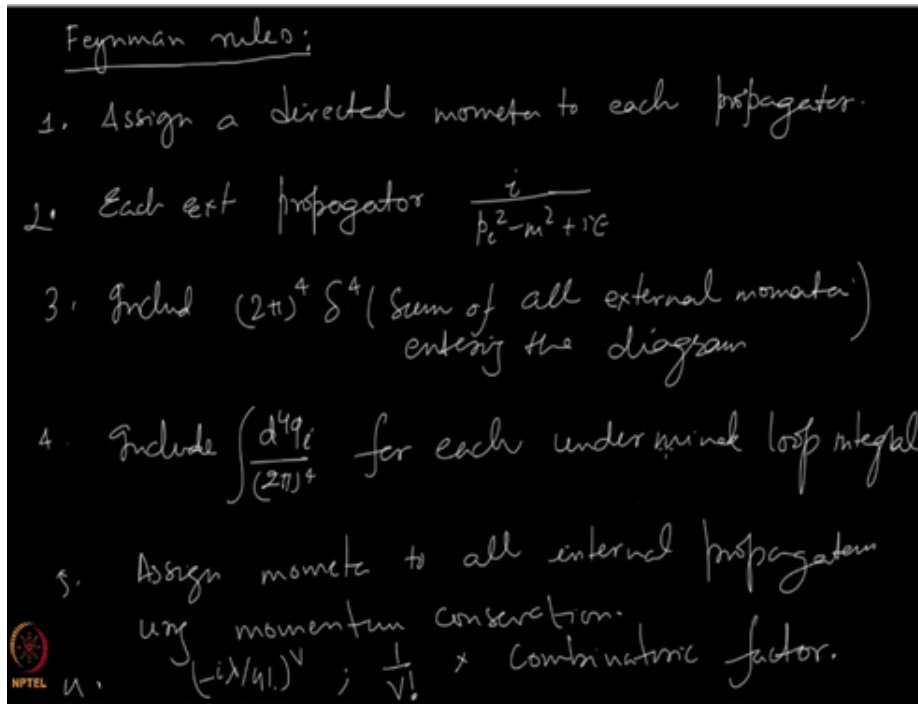 Feynman rules:
1. Assign a directed mometa to each propagator.
2. Each ext propagator i / (p_i^2 - m^2 + iε)
3. Includ (2π)^4 δ^4 (Sum of all external momata
entering the diagram)
4. Include ∫ d^4q_i / (2π)^4 for each underminet loop integral
5. Assign mometa to all internal propagators
using momentum conservation.
(-iλ/4!)^V ; 1/V! × Combinatoric factor.
NPTEL